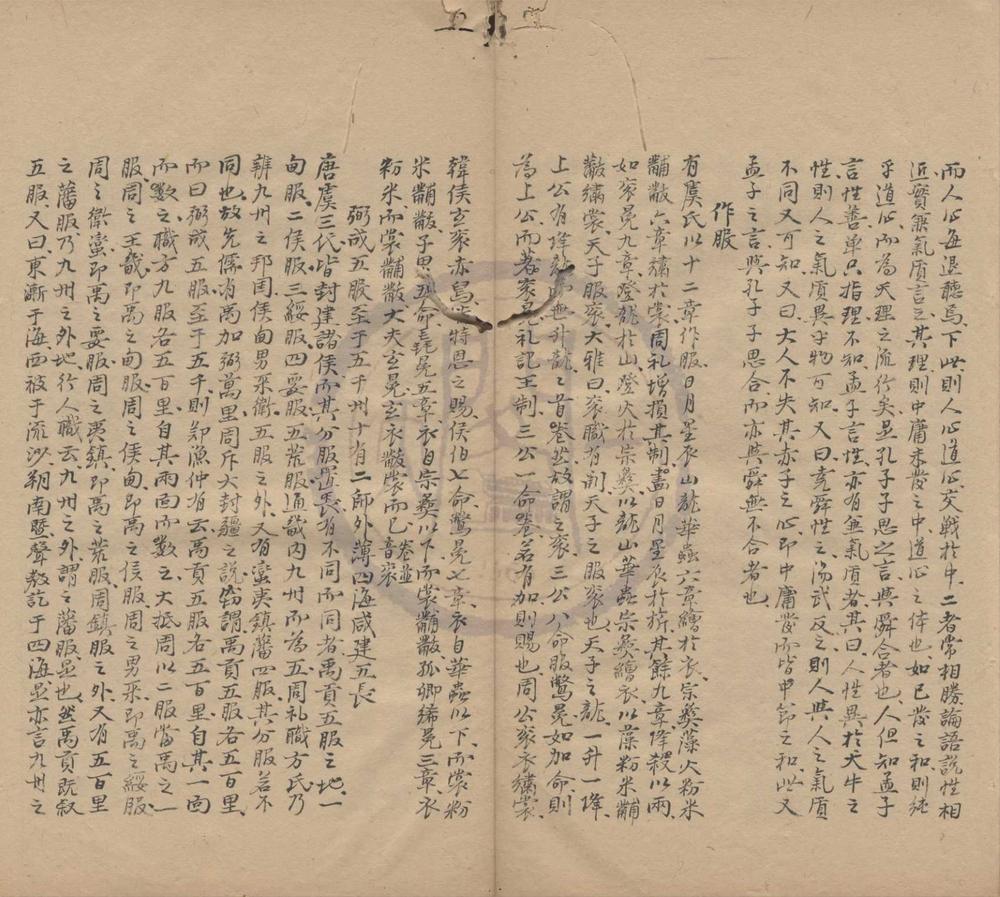 而人心每退聽焉下此則人心道心交戰於中二者常相勝論語說性相
近實兼氣质言之其理則中庸未發之中道心之体也如已發之和則純
乎道心而為天理之流行矣是孔子子思之言與舜合者也人但知孟子
言性善单只指理不知孟子言性亦有兼氣质者其曰人性異於犬牛之
性則人之氣质異乎物可知又曰堯舜性之湯武反之則人與人之氣质
不同又可知又曰大人不失其赤子之心即中庸發而皆中節之和此又
孟子之言與孔子子思合而亦與舜無不合者也
作服
有虞氏以十二章作服日月星辰山龍華蟲六章繪於衣宗彝藻火粉米
黼黻六章繡於裳周礼增損其制畫日月星辰於旂其餘九章降殺以兩
如衮冕九章登龍於山登火於宗彝以龍山華蟲宗彝繪衣以藻粉米黼
黻繡裳天子服衮大雅曰衮職有闕天子之服衮也天子之龍一升一降
上公有降龍無升龍龍首卷然故謂之衮三公八命服鷩冕如加命則
為上公而著衮冕礼記王制三公一命卷若有加則賜也周公衮衣繡裳
韓侯玄衮赤舄皆特恩之賜侯伯七命鷩冕七章衣自華蟲以下而裳粉
米黼黻子男五命毳冕五章衣自宗彝以下而裳黼黻孤卿絺冕三章衣
粉米而裳黼黻大夫玄冕玄衣黻裳而已卷並音衮
弼成五服至于五千州十有二師外薄四海咸建五長
唐虞三代皆封建諸侯而其分服置長有不同而同者禹貢五服之地一
甸服二侯服三綏服四要服五荒服通畿内九州而為五周礼職方氏乃
辨九州之邦国侯甸男采衛五服之外又有蛮夷鎮藩四服其分服若不
同也故先儒有禹加弼萬里周斥大封疆之說不謂禹貢五服各五百里
而曰弼成五服至于五千則郑漁仲有云禹貢五服各五百里自其一面
而數之職方九服各五百里自其兩面而數之大抵周以二服當禹之一
服周之王畿即禹之甸服周之侯甸即禹之侯服周之男采即禹之綏服
周之衛蛮即禹之要服周之夷鎮即禹之荒服周鎮服之外又有五百里
之藩服乃九州之外地行人職云九州之外謂之藩服是也然禹貢既叙
五服又曰東漸于海西被于流沙朔南暨聲教訖于四海是亦言九州之